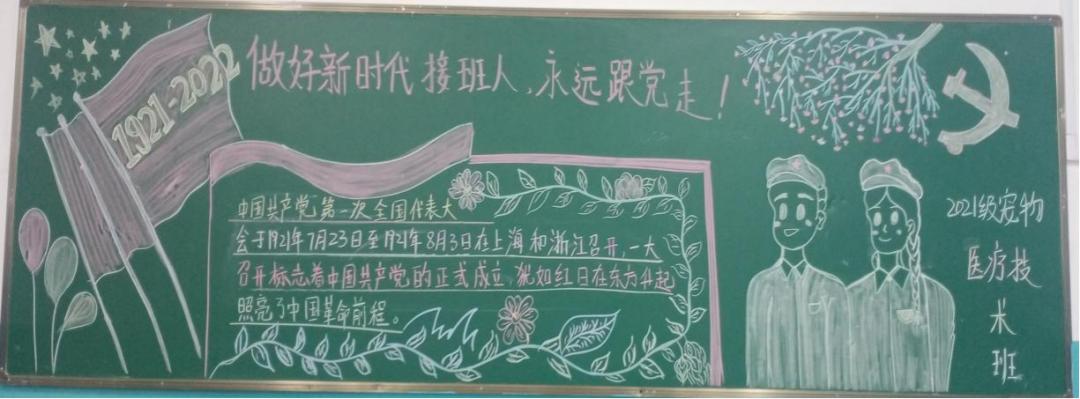 1921-2022
做好新时代接班人,永远跟党走！
中国共产党第一次全国代表大
会于1921年7月23日至1921年8月3日在上海和浙江召开,一大
召开标志着中国共产党的正式成立,犹如红日在东方升起
照亮了中国革命前程。
2021级宠物
医疗技
术
班